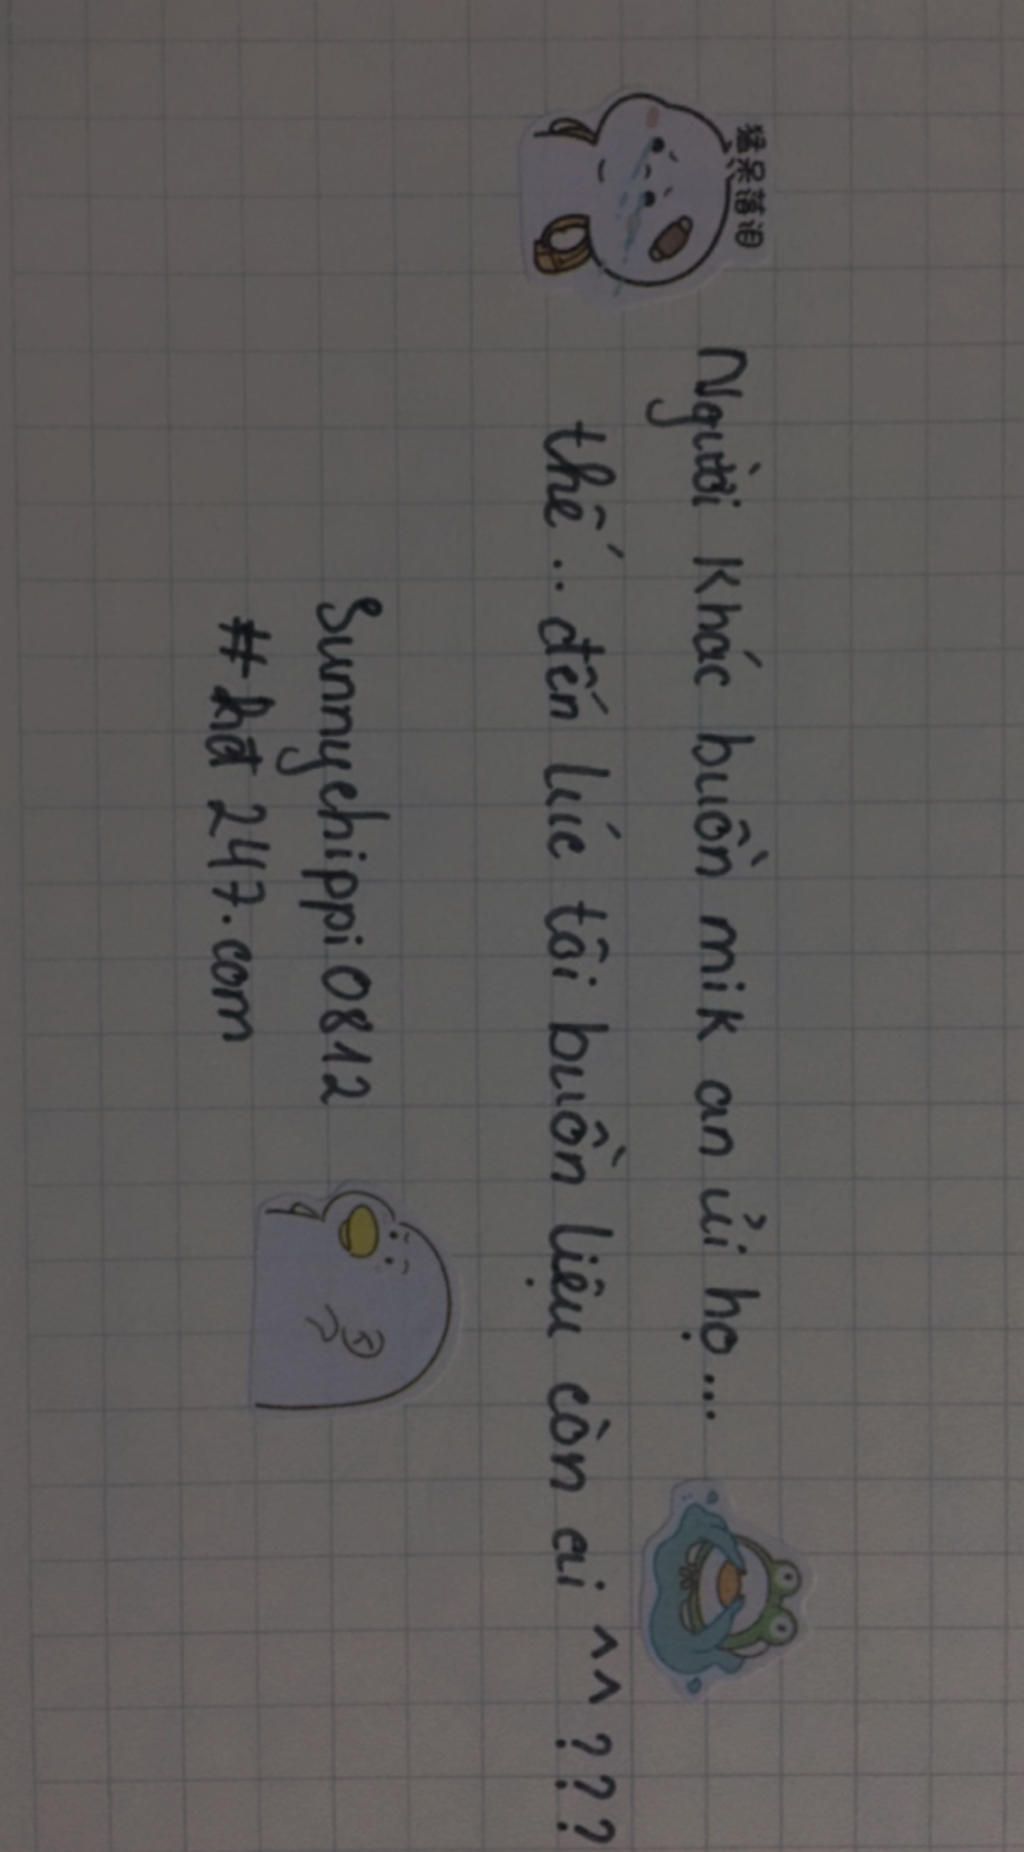 猛呆落泪
Người Khác buồn mik an ủi họ...
thế .. đến lúc tôi buồn liệu còn ai ^^ ???
Sunnychippi0812
#hđ 247.com